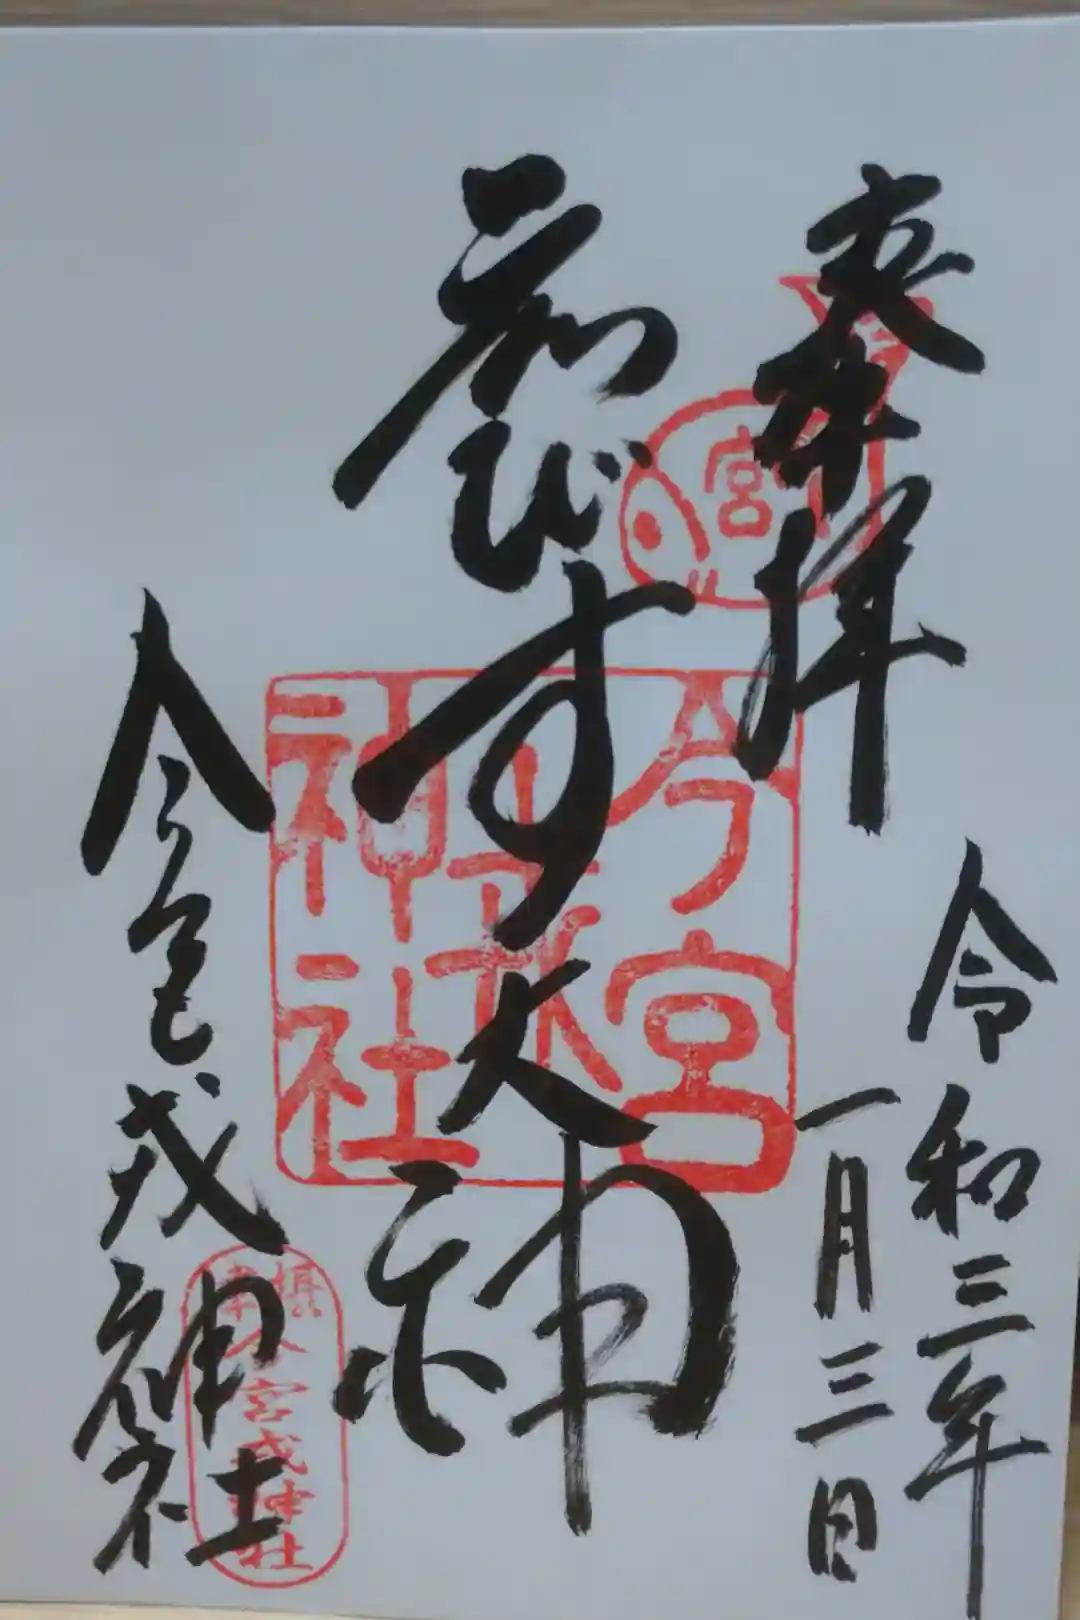 奉拝
令和三年
一月三日
ゑびす大神
今宮戎神社
宮
今宮
神社
宮戎神社